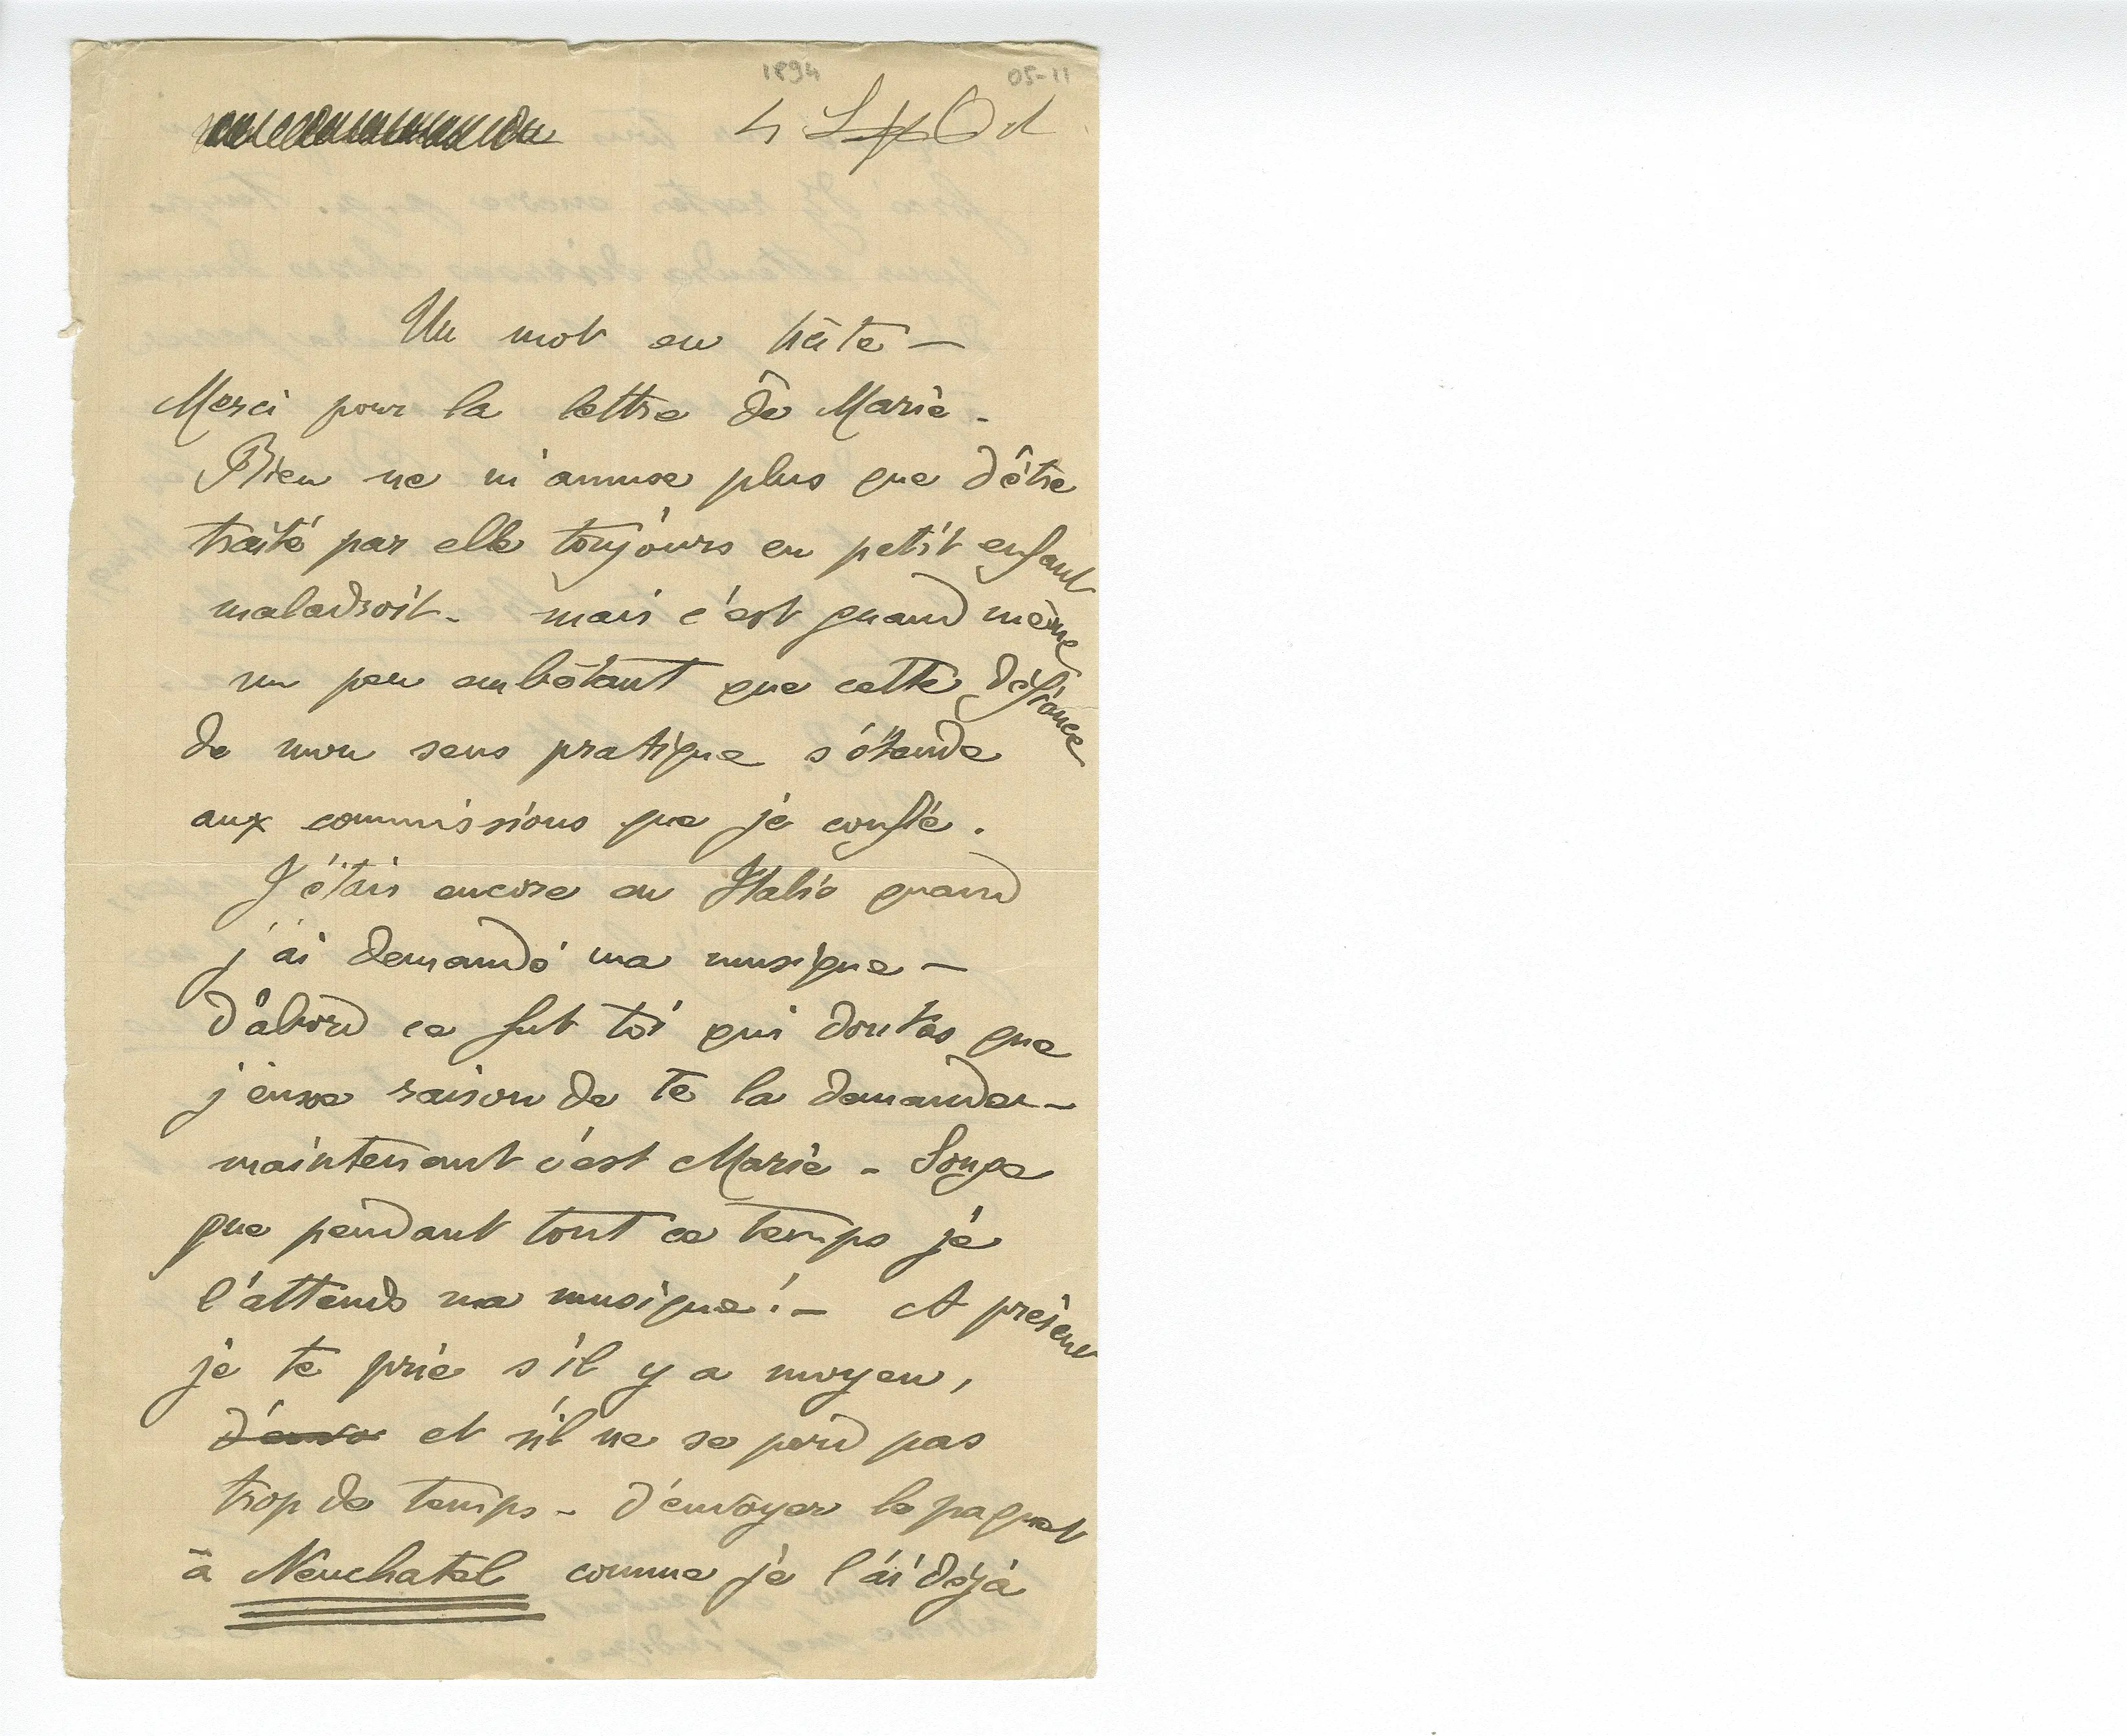 1894 05-11
4 Sept Oct
Un mot en hâte —
Merci pour la lettre de Marie -
Rien ne m'amuse plus que d'être
traité par elle toujours en petit enfant
maladroit - mais c'est quand même
un peu embêtant que cette défiance
de mon sens pratique s'étende
aux commissions que je confie.
J'étais encore en Italie quand
j'ai demandé ma musique —
d'abord ce fut toi qui doutas que
j'eusse raison de te la demander —
maintenant c'est Marie - Songe
que pendant tout ce temps je
l'attends ma musique! — A présent
je te prie s'il y a moyen,
d'envo et s'il ne se perd pas
trop de temps - d'envoyer le paquet
à Neuchatel comme je l'ai déjà